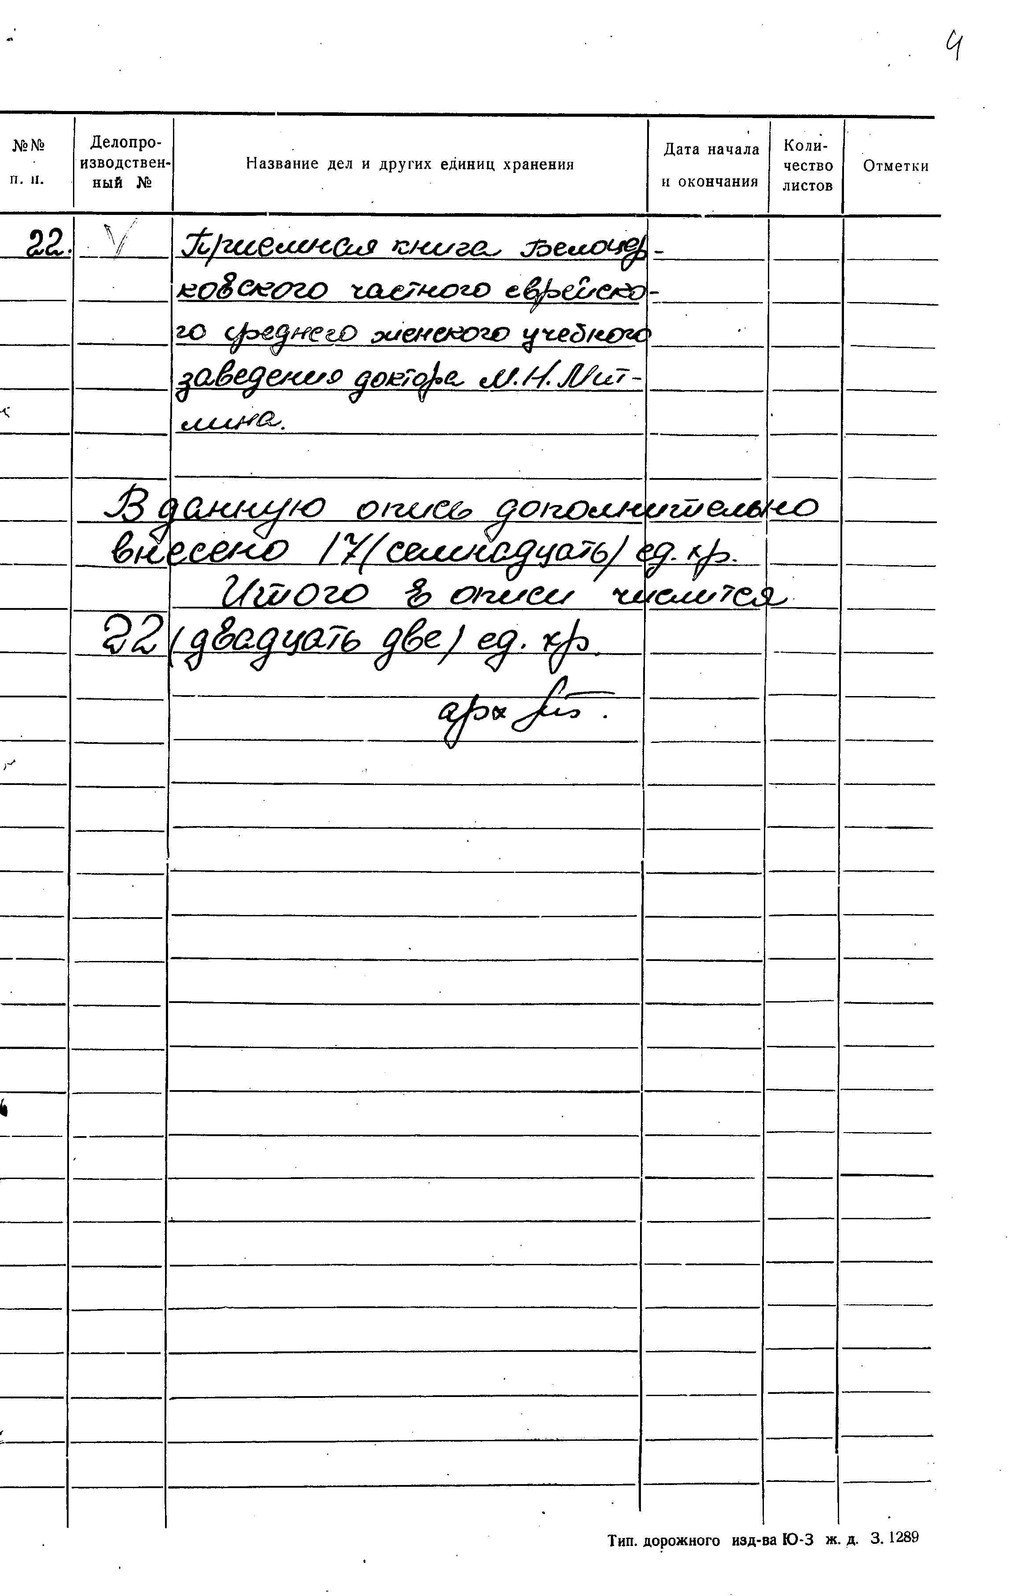 4
№№ п. п. Делопроизводствен- ный № Название дел и других единиц хранения Дата начала и окончания Коли- чество листов Отметки
22. V Приемная книга Белоцер-
ковского частного еврейско-
го среднего женского учебного
заведения доктора М.Н. Мит-
лина.
В данную опись дополнительно
внесено 17 (семнадцать) ед. хр.
Итого в описи числится
22 (двадцать две) ед. хр.
арх
Тип. дорожного изд-ва Ю-З ж. д. З. 1289